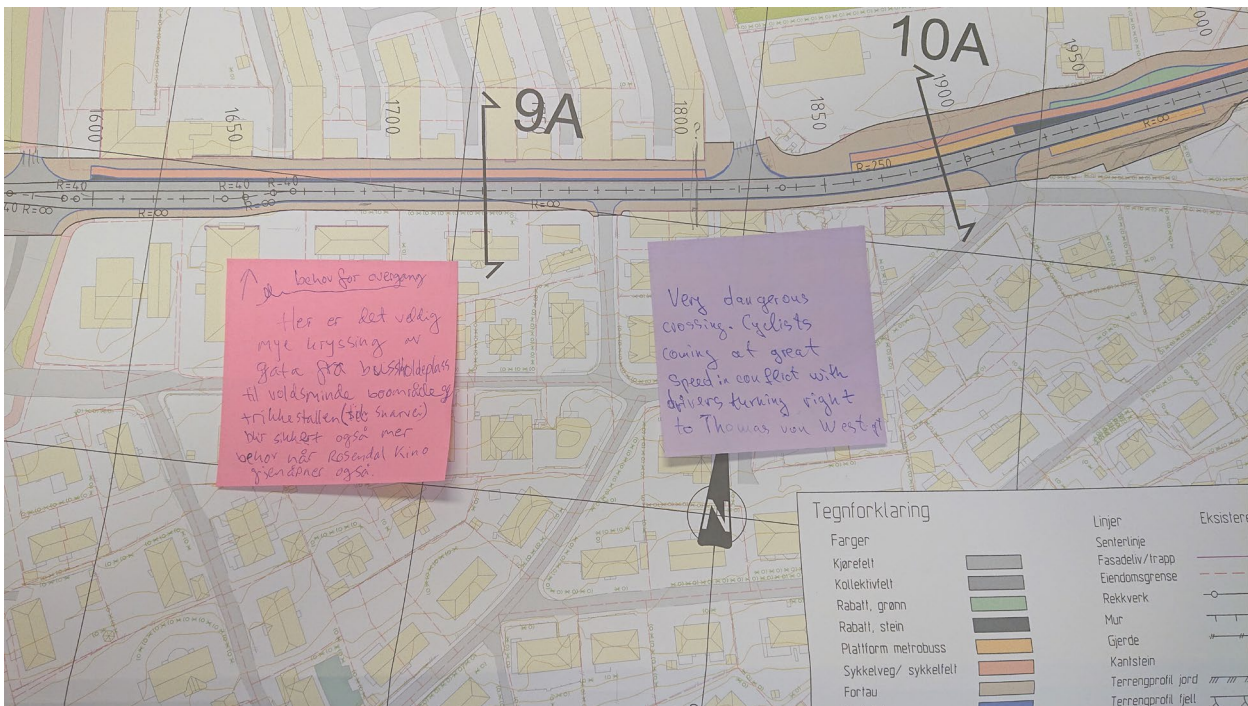 9A
10A
1600
1650
1700
1800
1850
1900
1950
?
R=40
R=40
R=40
R=∞
R=∞
R=∞
R=250
R=∞
behov for overgang
Her er det veldig
mye kryssing av
gata fra bussholdeplass
til voldsminde boområde og
trikkestallen (snarvei)
blir sikkert også mer
behov når Rosendal Kino
gjenåpner også.
Very dangerous
crossing. Cyclists
coming at great
speed in conflict with
drivers turning right
to Thomas von West gt
N
Tegnforklaring
Farger
Kjørefelt
Kollektivfelt
Rabatt, grønn
Rabatt, stein
Plattform metrobuss
Sykkelveg/ sykkelfelt
Fortau
Linjer
Eksistere
Senterlinje
Fasadeliv/trapp
Eiendomsgrense
Rekkverk
Mur
Gjerde
Kantstein
Terrengprofil jord
Terrengprofil fjell